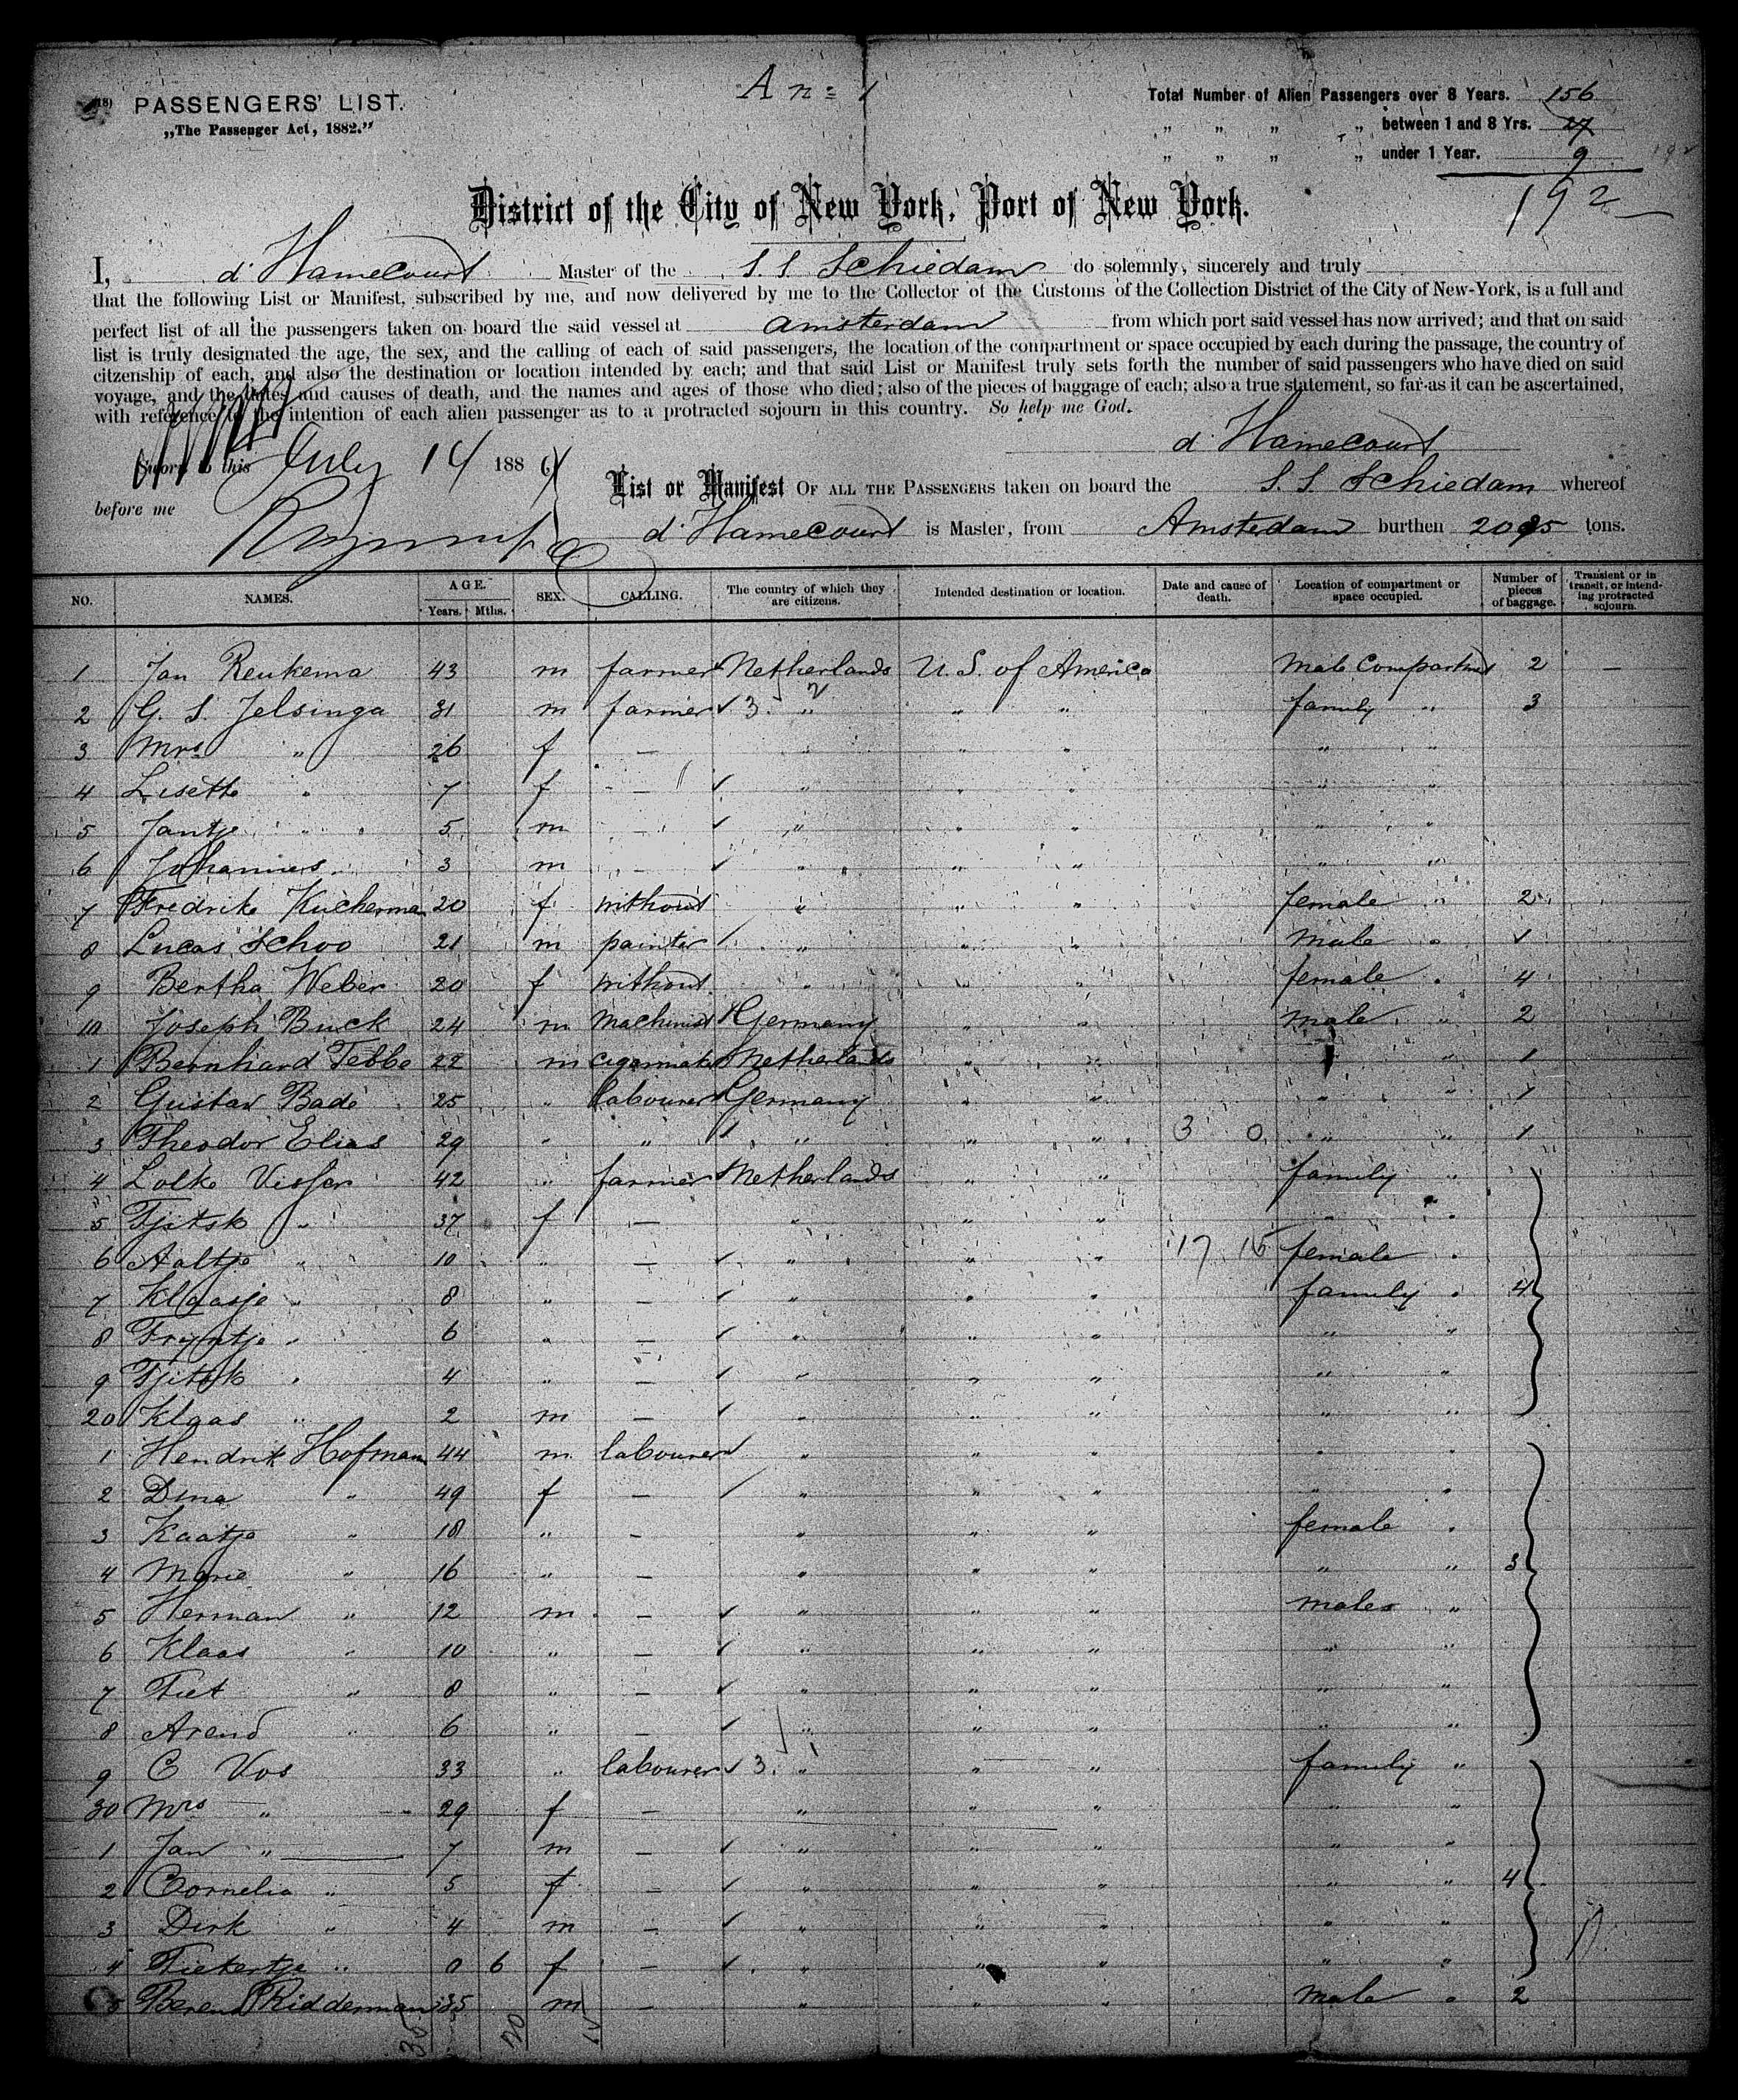 A no 1
PASSENGERS' LIST. Total Number of Alien Passengers over 8 Years. 156
„The Passenger Act, 1882." „ „ „ „ between 1 and 8 Yrs. 27
„ „ „ „ under 1 Year. 9
192
District of the City of New York, Port of New York.
I, d'Hamecourt Master of the S.S. Schiedam do solemnly, sincerely and truly
that the following List or Manifest, subscribed by me, and now delivered by me to the Collector of the Customs of the Collection District of the City of New-York, is a full and
perfect list of all the passengers taken on board the said vessel at Amsterdam from which port said vessel has now arrived; and that on said
list is truly designated the age, the sex, and the calling of each of said passengers, the location of the compartment or space occupied by each during the passage, the country of
citzenship of each, and also the destination or location intended by each; and that said List or Manifest truly sets forth the number of said passengers who have died on said
voyage, and the dates and causes of death, and the names and ages of those who died; also of the pieces of baggage of each; also a true statement, so far as it can be ascertained,
with reference to the intention of each alien passenger as to a protracted sojourn in this country. So help me God.
d'Hamecourt
Sworn to this July 14 1886
before me
List or Manifest OF ALL THE PASSENGERS taken on board the S.S. Schiedam whereof
d'Hamecourt is Master, from Amsterdam burthen 2095 tons.
NO. NAMES. AGE. Years. Mths. SEX. CALLING. The country of which they are citizens. Intended destination or location. Date and cause of death. Location of compartment or space occupied. Number of pieces of baggage. Transient or in transit, or intending protracted sojourn.
1 Jan Reukema 43 m farmer Netherlands U.S. of America Male Compartment 2 —
2 G. S. Jelsinga 31 m farmer 3 " " " family " 3
3 Mrs " 26 f — " " " " "
4 Lisette " 7 f — " " " " "
5 Jantje " 5 m — " " " " "
6 Johannes 3 m — " " " " "
7 Fredrike Kucherman 20 f without " " " female " 2
8 Lucas Schoo 21 m painter " " " male " 1
9 Bertha Weber 20 f without " " " female " 4
10 Joseph Buck 24 m machinist Germany " " male " 2
1 Bernhard Tebbe 22 m cigarmaker Netherlands " " " 1
2 Gustav Bade 25 " labourer Germany " " " " 1
3 Theodor Elias 29 " " " " " 3 0 " " 1
4 Lolke Visser 42 " farmer Netherlands " " family "
5 Tjitsk " 37 f — " " " " "
6 Aaltje " 10 " — " " " 17 15 female "
7 Klaasje " 8 " — " " " family " 4
8 Tryntje " 6 " — " " " " "
9 Tjitsk " 4 " — " " " " "
20 Klaas " 2 m — " " " " "
1 Hendrik Hofman 44 m labourer " " " " "
2 Dina " 49 f — " " " " "
3 Kaatje " 18 " — " " " female "
4 Marie " 16 " — " " " " " 3
5 Herman " 12 m — " " " males "
6 Klaas " 10 " — " " " " "
7 Tiet " 8 " — " " " " "
8 Arend " 6 " — " " " " "
9 C Vos 33 " labourer 3 " " " family "
30 Mrs " 29 f — " " " " "
1 Jan " 7 m — " " " " "
2 Cornelia " 5 f — " " " " " 4
3 Dirk " 4 m — " " " " "
4 Tiekertje " 0 6 f — " " " " "
5 Berend Ridderman 35 m — " " " male " 2
35 20 15